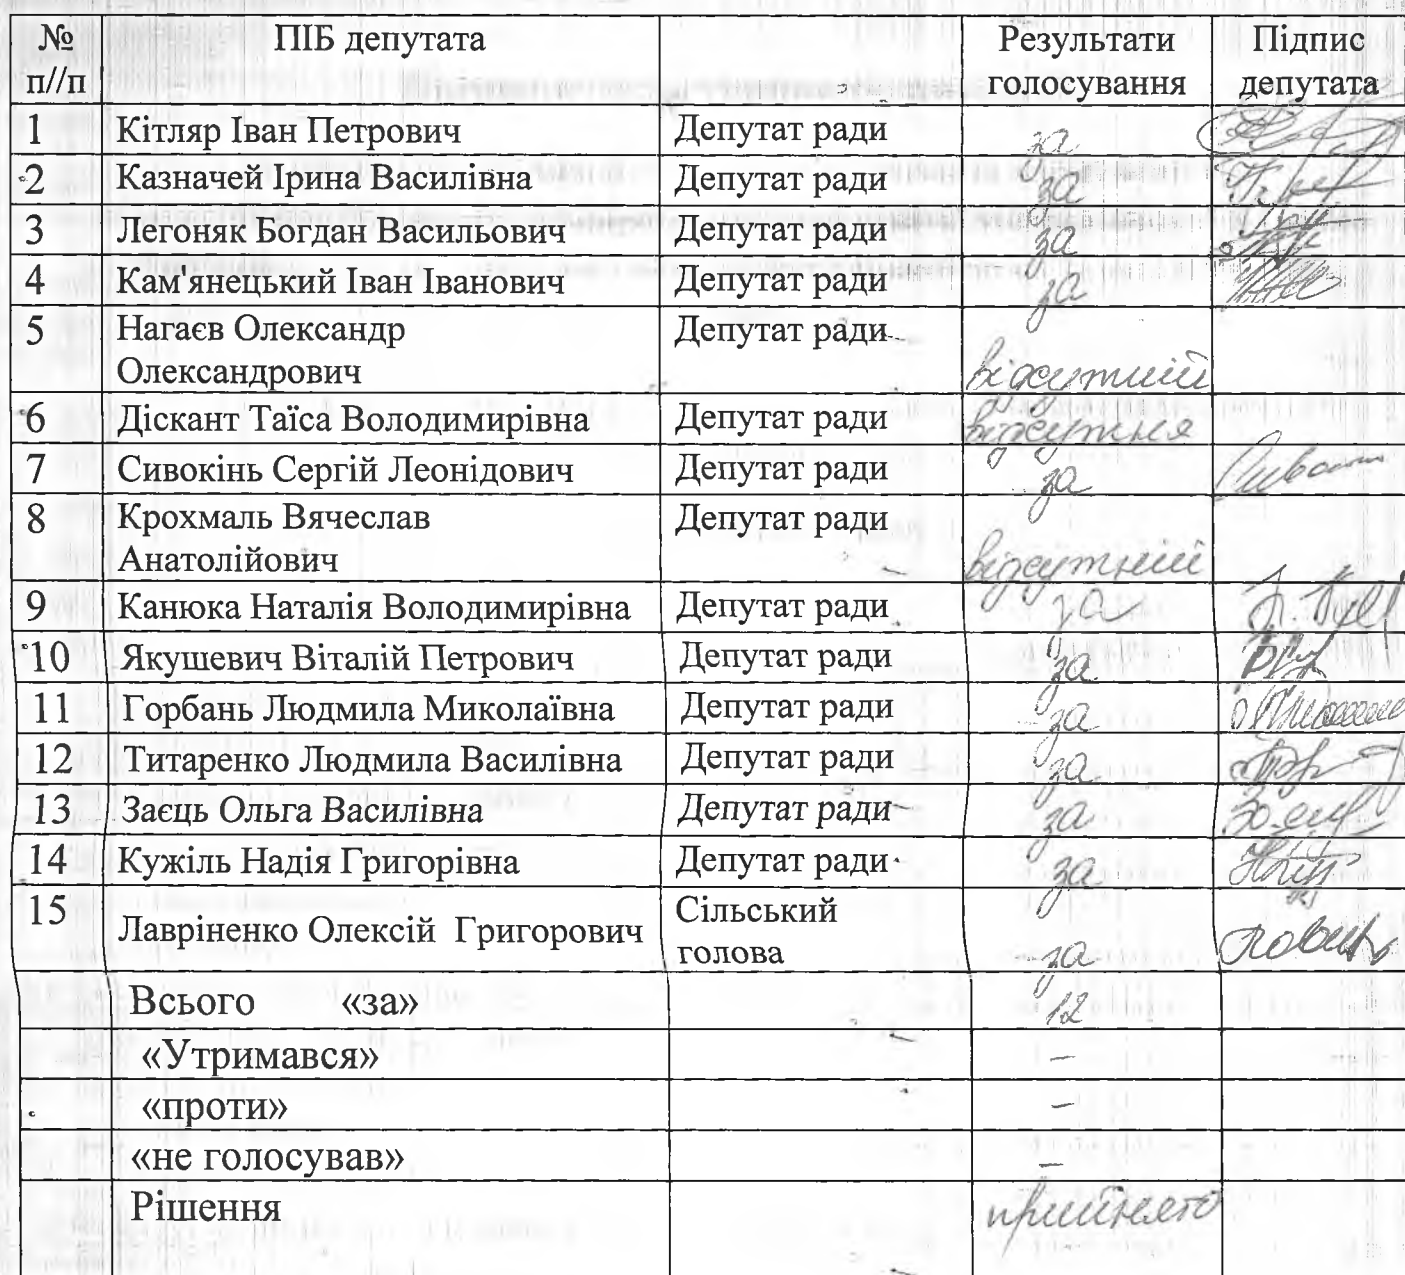 № ПІБ депутата Результати Підпис
п//п голосування депутата
1 Кітляр Іван Петрович Депутат ради за
2 Казначей Ірина Василівна Депутат ради за
3 Легоняк Богдан Васильович Депутат ради за
4 Кам'янецький Іван Іванович Депутат ради за
5 Нагаєв Олександр Депутат ради
Олександрович відсутній
6 Діскант Таїса Володимирівна Депутат ради відсутня
7 Сивокінь Сергій Леонідович Депутат ради за
8 Крохмаль Вячеслав Депутат ради
Анатолійович відсутній
9 Канюка Наталія Володимирівна Депутат ради за
10 Якушевич Віталій Петрович Депутат ради за
11 Горбань Людмила Миколаївна Депутат ради за
12 Титаренко Людмила Василівна Депутат ради за
13 Заєць Ольга Василівна Депутат ради за
14 Кужіль Надія Григорівна Депутат ради за
15 Лавріненко Олексій Григорович Сільський
голова за
Всього «за» 12
«Утримався» –
«проти» –
«не голосував» –
Рішення прийнято